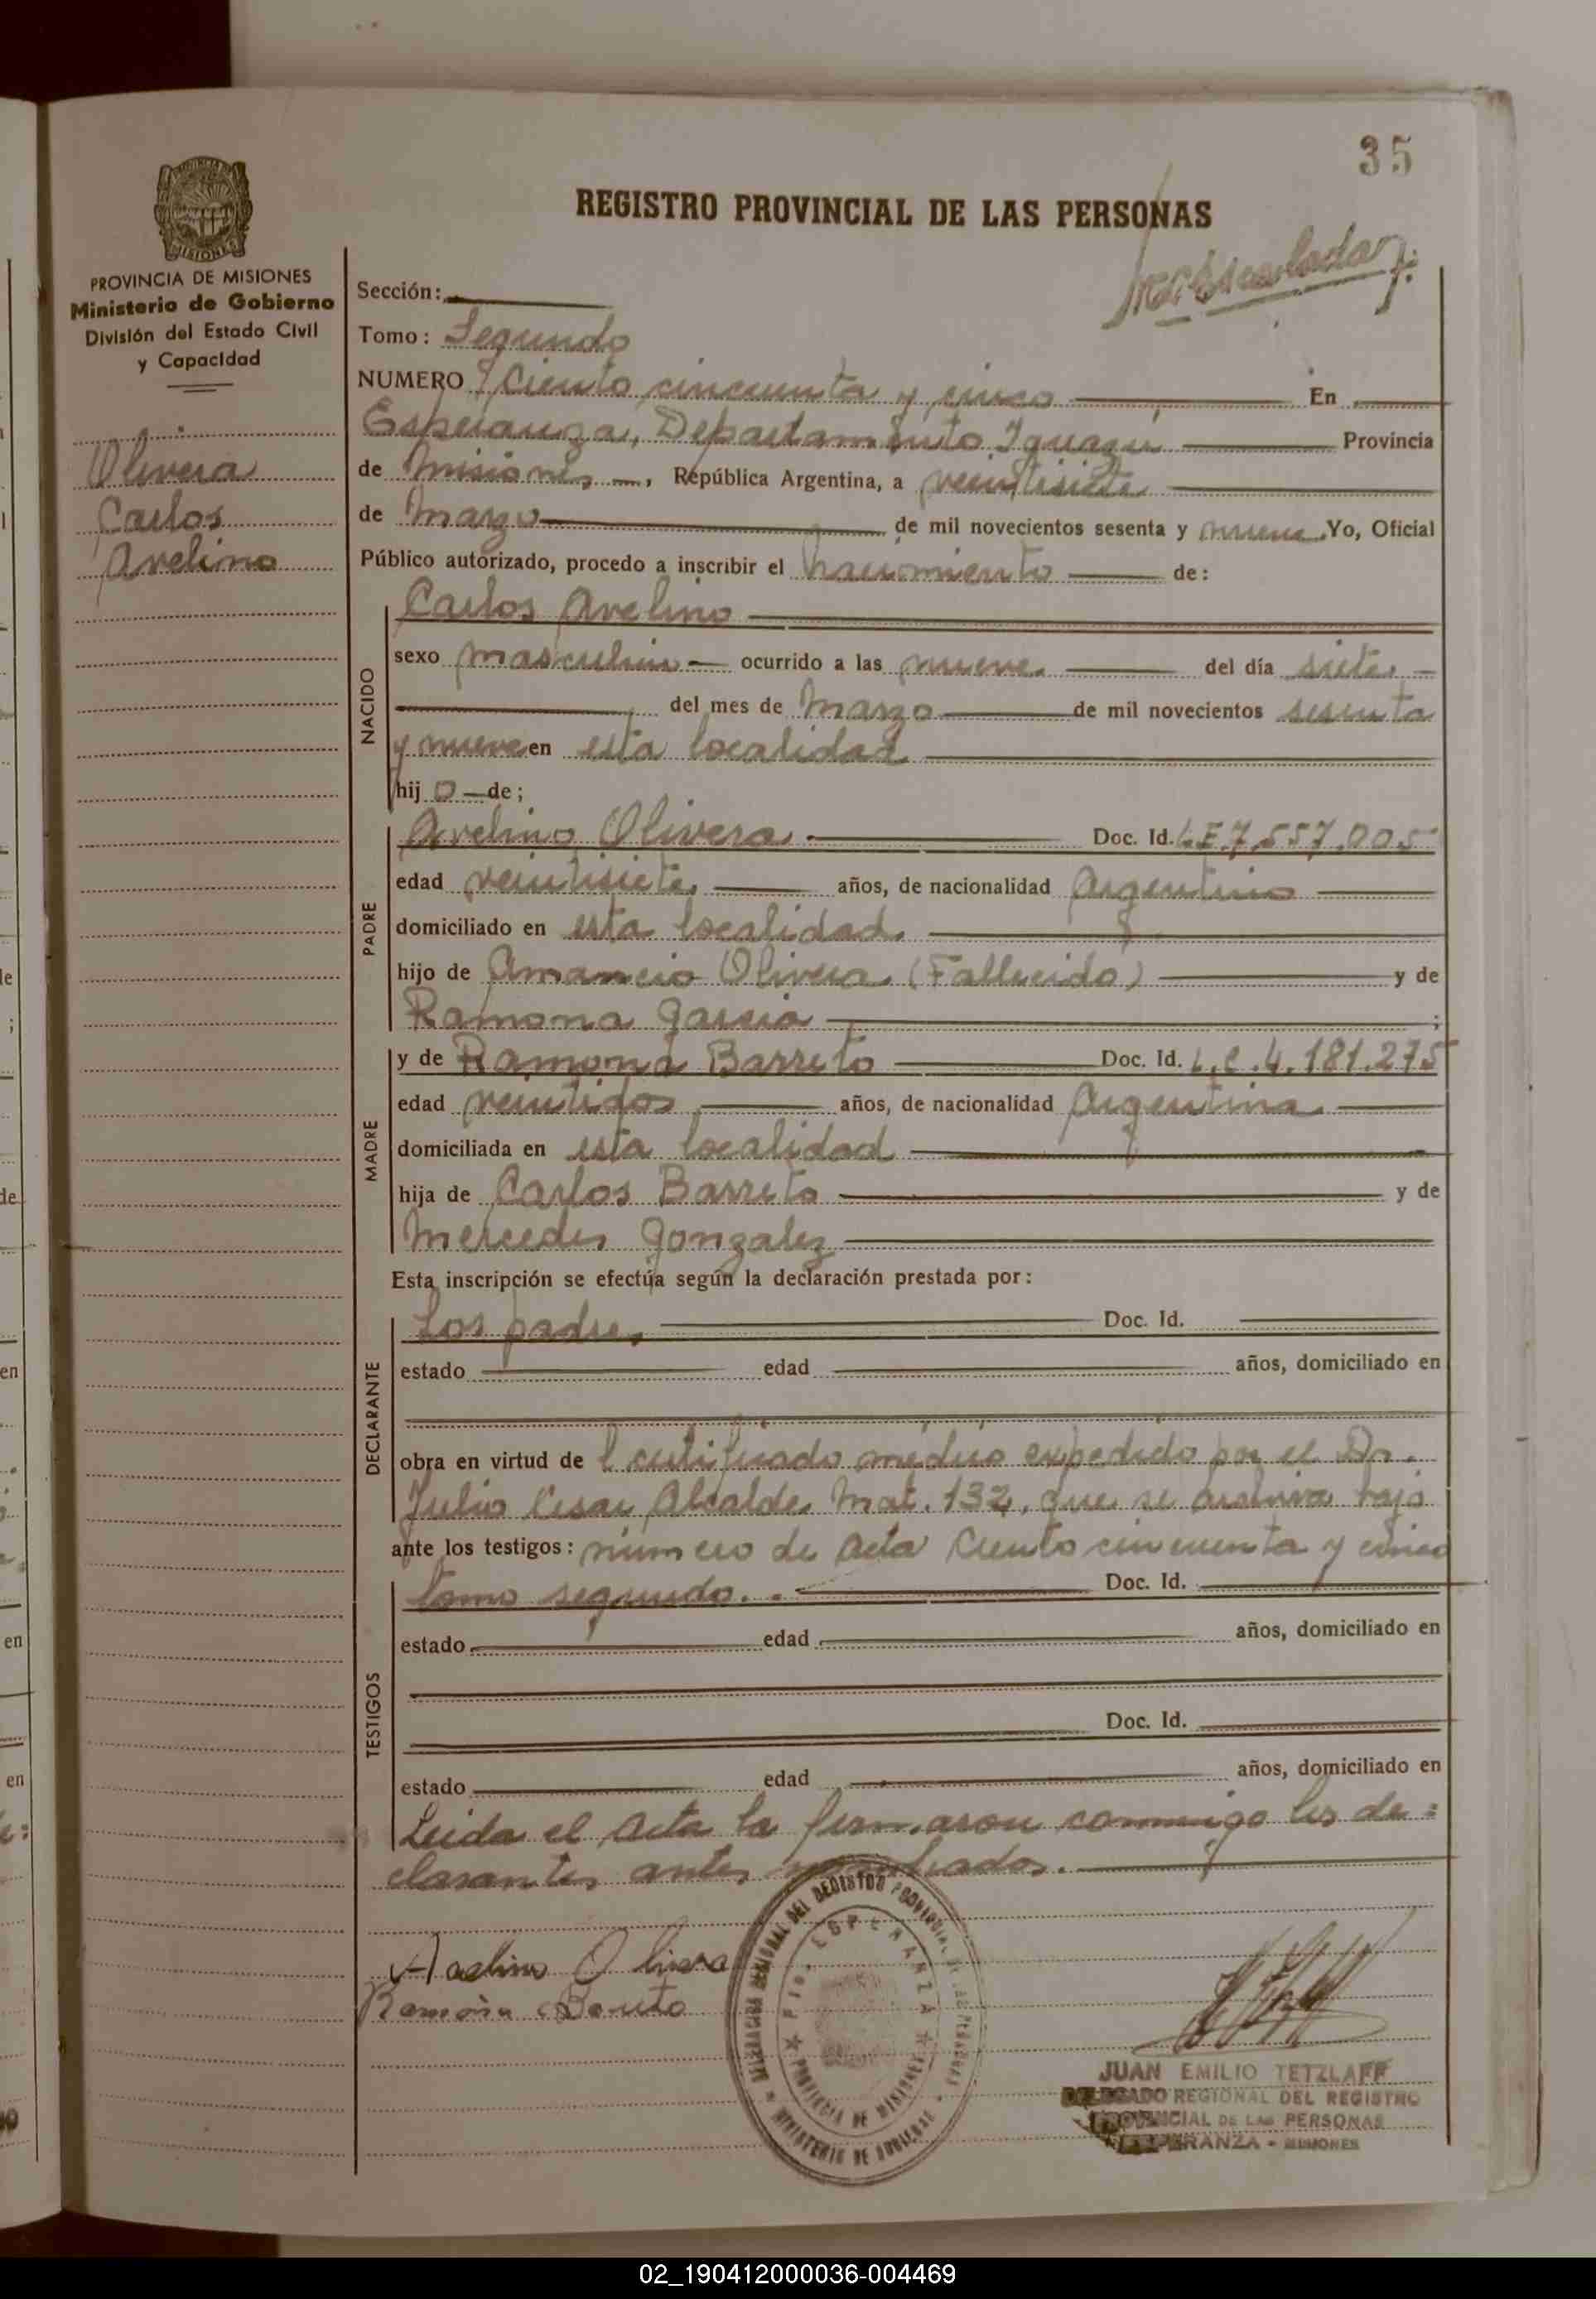 35
REGISTRO PROVINCIAL DE LAS PERSONAS
PROVINCIA DE MISIONES
Ministerio de Gobierno
División del Estado Civil
y Capacidad
Olivera
Carlos
Avelino
Sección:
Tomo: Segundo
NUMERO Ciento cincuenta y cinco En
Esperanza, Departamento Iguazú Provincia
de Misiones, República Argentina, a veintisiete
de Marzo de mil novecientos sesenta y nueve Yo, Oficial
Público autorizado, procedo a inscribir el nacimiento de:
NACIDO
Carlos Avelino
sexo masculino ocurrido a las nueve del día siete
del mes de Marzo de mil novecientos sesenta
y nueve en esta localidad
hij o de;
PADRE
Avelino Olivera Doc. Id. L.E.7.557.005
edad veintisiete años, de nacionalidad Argentino
domiciliado en esta localidad
hijo de Amancio Olivera (Fallecido) y de
Ramona Garsia ;
MADRE
y de Ramona Barreto Doc. Id. L.C.4.181.275
edad veintidos años, de nacionalidad Argentina
domiciliada en esta localidad
hija de Carlos Barreto y de
Mercedes Gonzalez
Esta inscripción se efectúa según la declaración prestada por:
DECLARANTE
Los padres Doc. Id.
estado edad años, domiciliado en
obra en virtud de l certificado medico expedido por el Dr.
Julio Cesar Alcalde Mat. 132, que se archiva bajo
ante los testigos: número de Acta Ciento cincuenta y cinco
TESTIGOS
tomo segundo. Doc. Id.
estado edad años, domiciliado en
Doc. Id.
estado edad años, domiciliado en
Leida el Acta la firmaron conmigo los de=
clarantes antes
Avelino Olivera
Ramona Barreto
ESPERANZA
PROVINCIA DE MISIONES
MINISTERIO DE GOBIERNO
JUAN EMILIO TETZLAFF
DELEGADO REGIONAL DEL REGISTRO
PROVINCIAL DE LAS PERSONAS
ESPERANZA - MISIONES
02_190412000036-004469